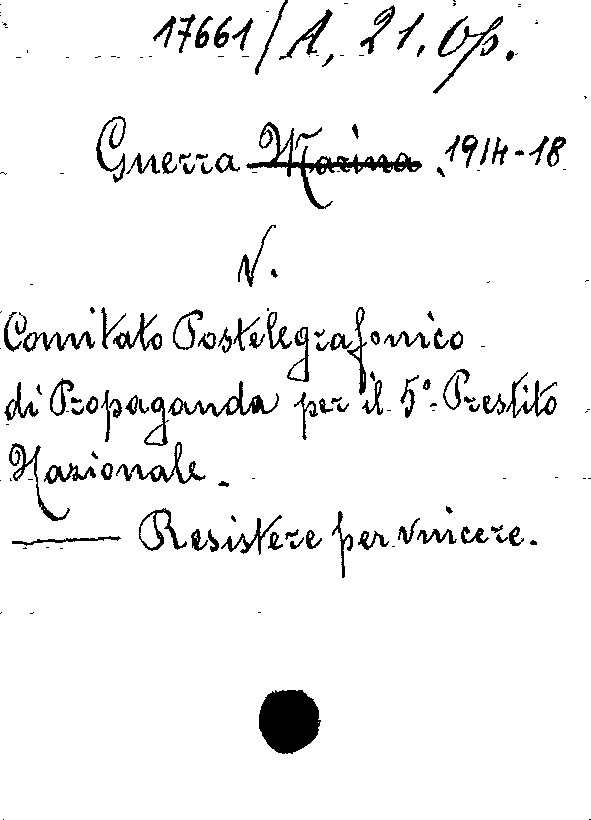 17661/A, 21. Op.
Guerra Marina, 1914-18
V.
Comitato Postelegrafonico
di Propaganda per il 5º. Prestito
Nazionale.
— Resistere per vincere.